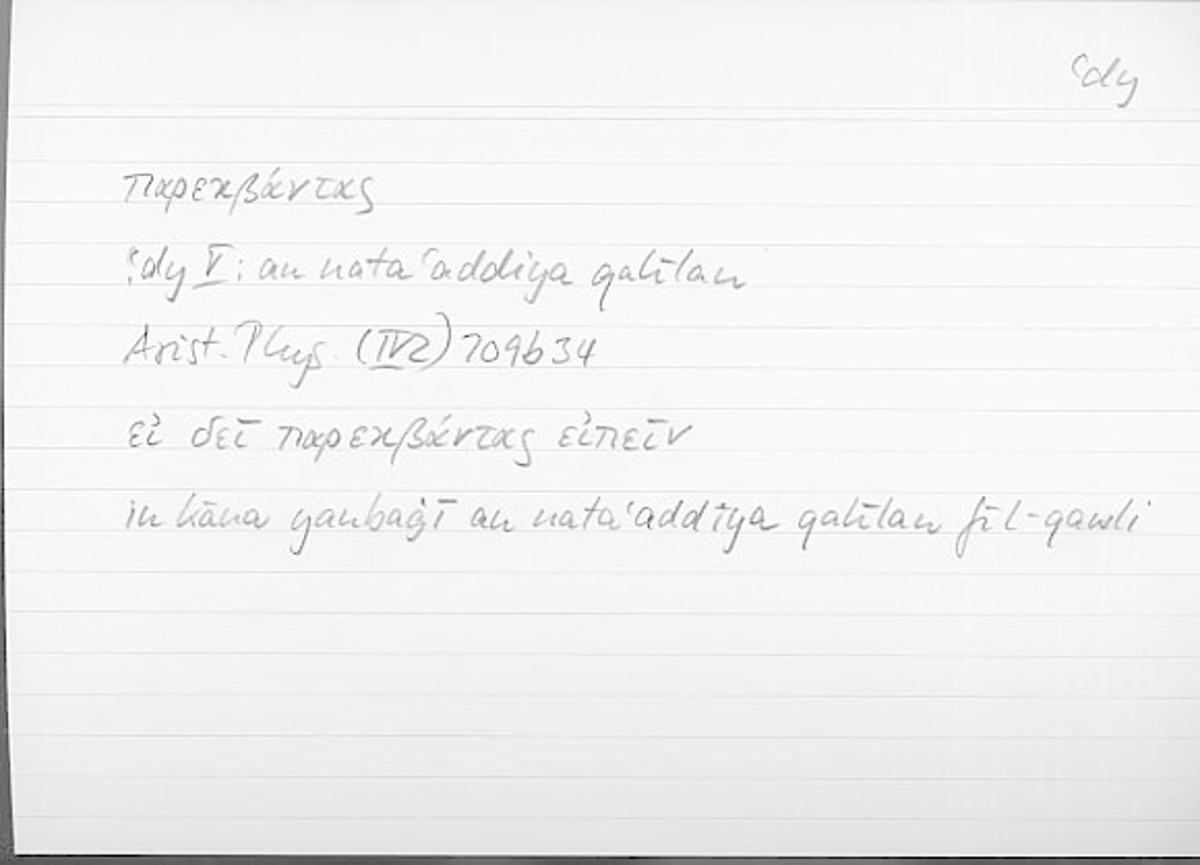 ʿdy
παρεκβάντας
ʿdy V: an nataʿaddiya qalīlan
Arist. Phys. (IV2) 209b34
εἰ δεῖ παρεκβάντας εἰπεῖν
in kāna yanbaġī an nataʿaddīya qalīlan fī l-qawli